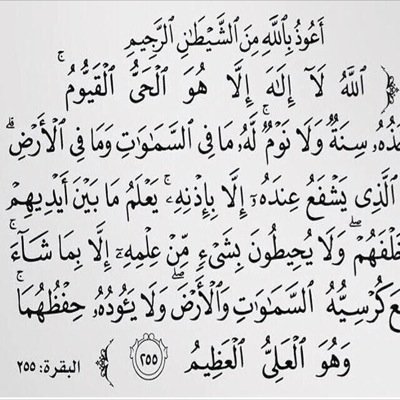 أَعُوذُ بِاللَّهِ مِنَ الشَّيْطَانِ الرَّجِيمِ
ٱللَّهُ لَآ إِلَٰهَ إِلَّا هُوَ ٱلْحَىُّ ٱلْقَيُّومُ ۚ
خُذُهُۥ سِنَةٌ وَلَا نَوْمٌ ۚ لَّهُۥ مَا فِى ٱلسَّمَٰوَٰتِ وَمَا فِى ٱلْأَرْضِ ۗ
ٱلَّذِى يَشْفَعُ عِندَهُۥٓ إِلَّا بِإِذْنِهِۦ ۚ يَعْلَمُ مَا بَيْنَ أَيْدِيهِمْ
خَلْفَهُمْ ۖ وَلَا يُحِيطُونَ بِشَىْءٍ مِّنْ عِلْمِهِۦٓ إِلَّا بِمَا شَآءَ ۚ
عَ كُرْسِيُّهُ ٱلسَّمَٰوَٰتِ وَٱلْأَرْضَ ۖ وَلَا يَـُٔودُهُۥ حِفْظُهُمَا ۚ
وَهُوَ ٱلْعَلِىُّ ٱلْعَظِيمُ ٢٥٥ البقرة: ٢٥٥